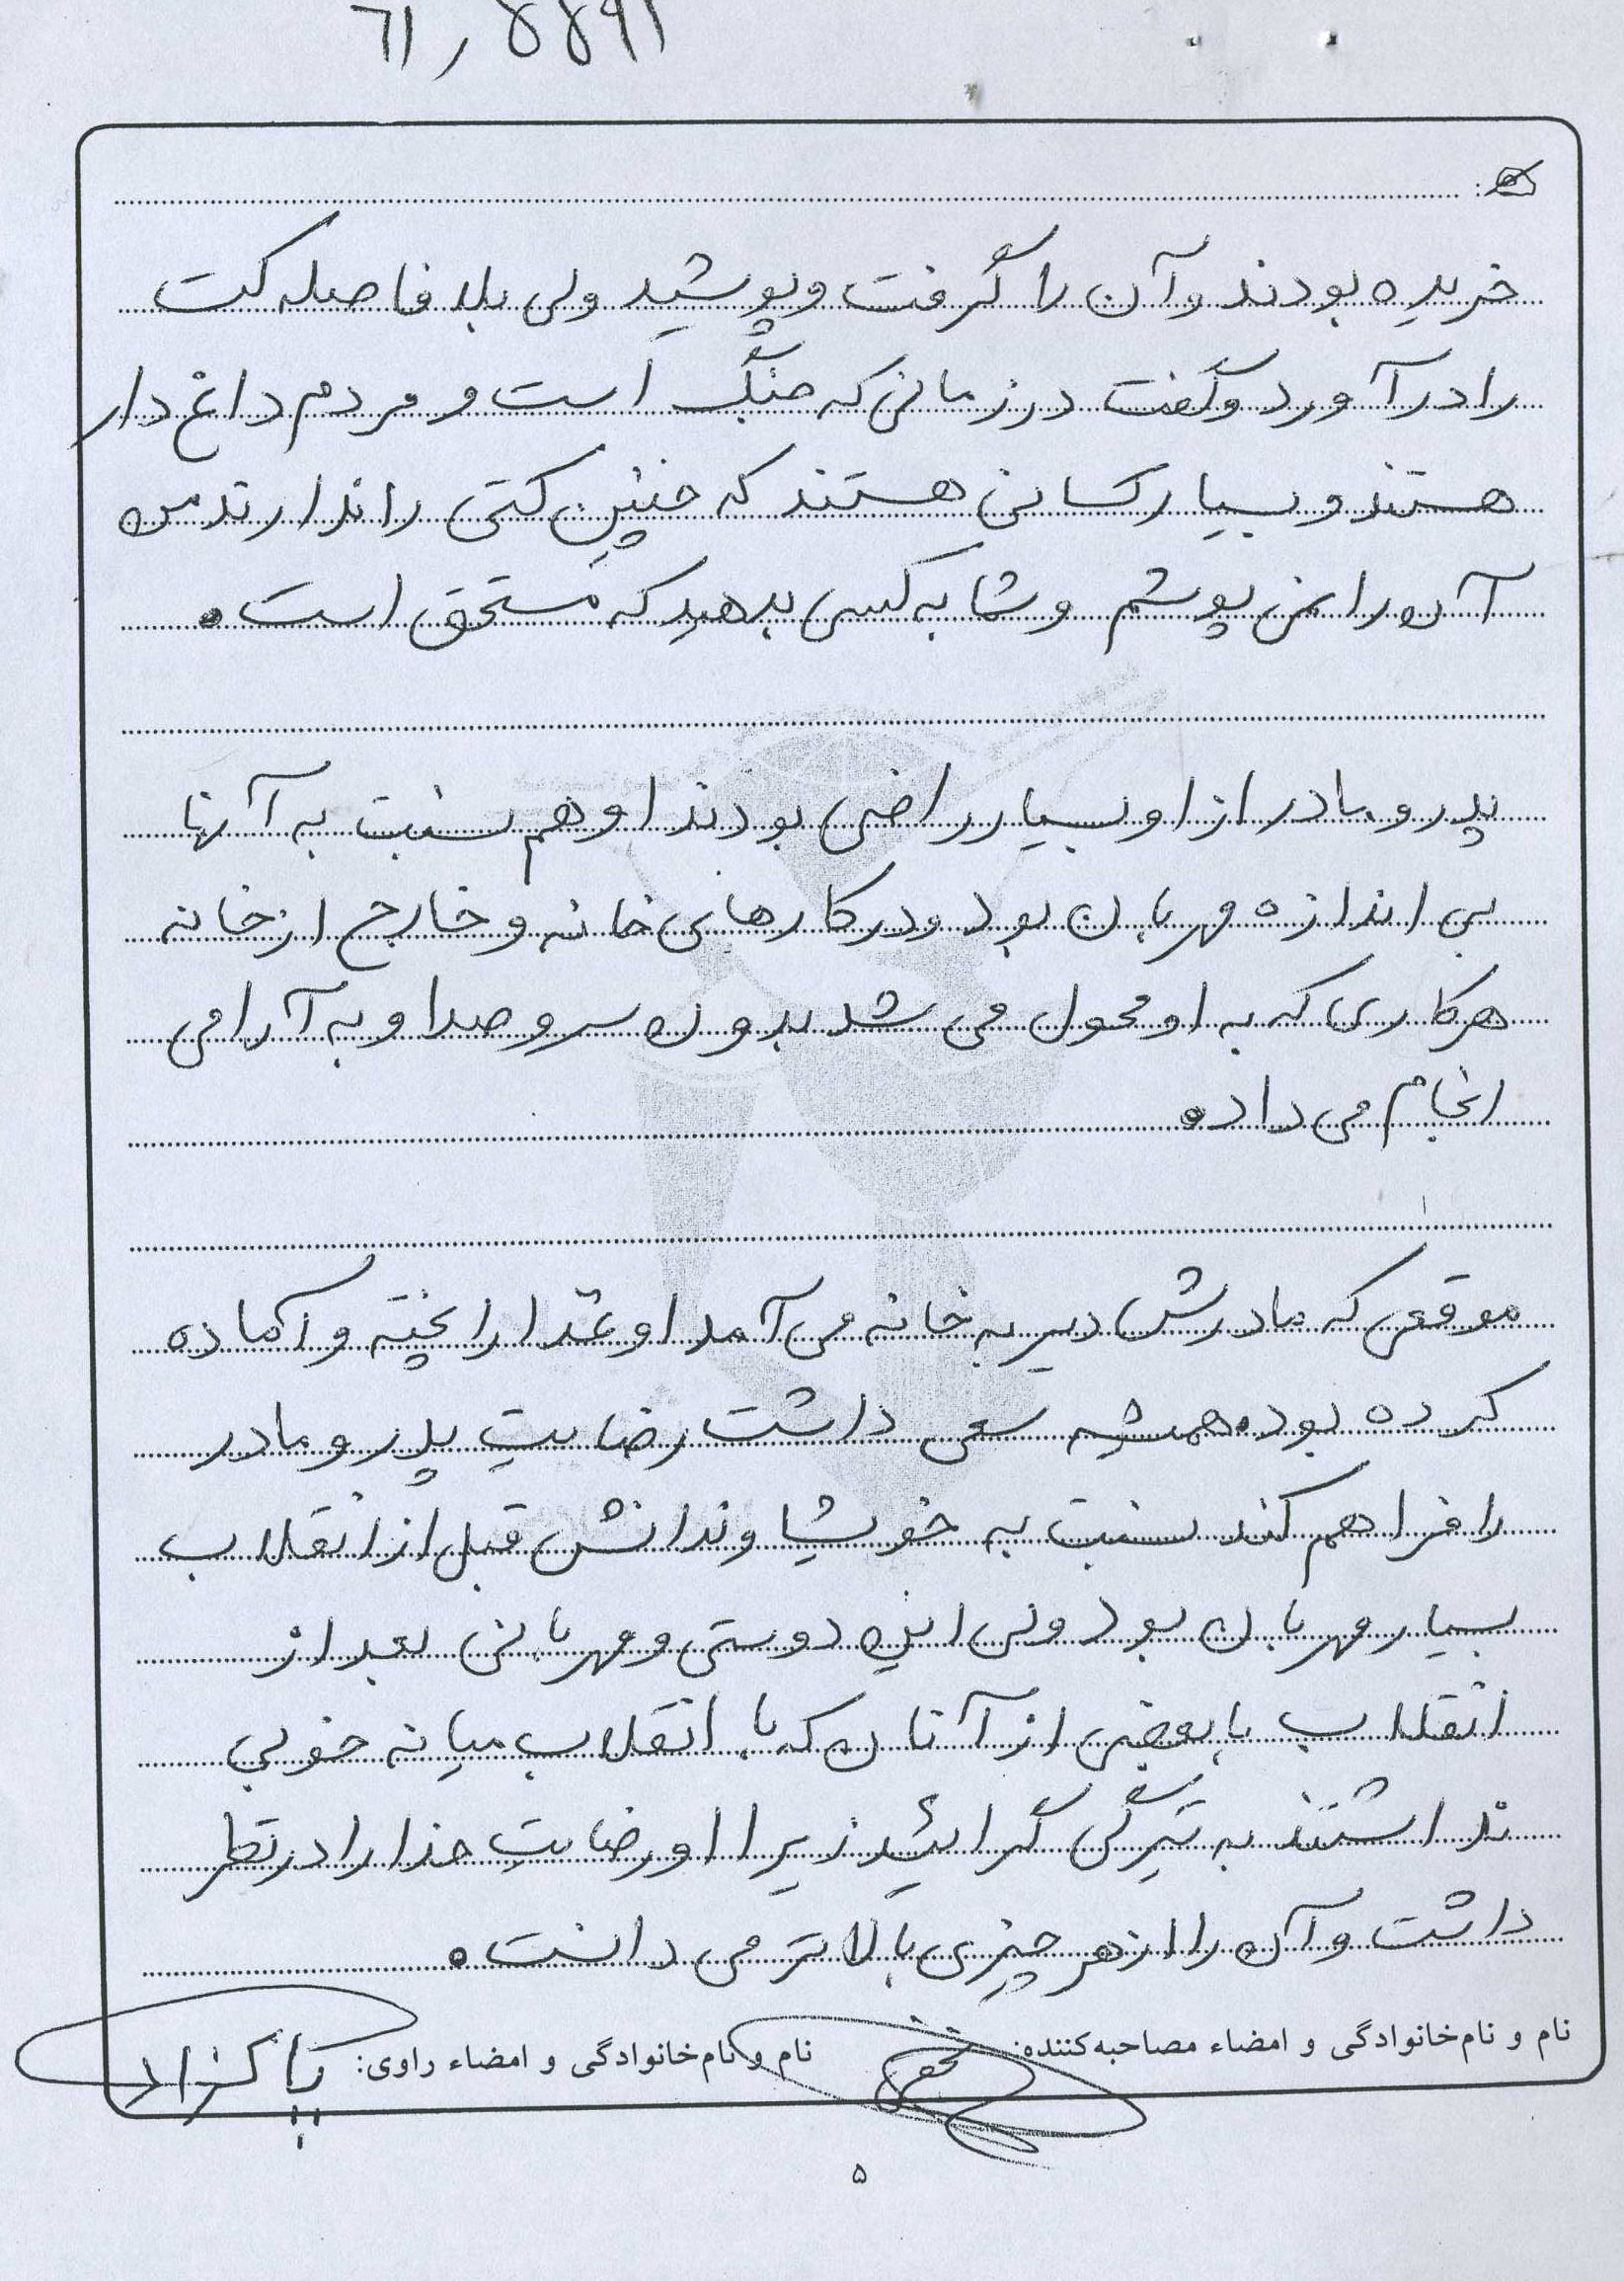 خریده بودند و آن را گرفت و پوشید ولی بلا فاصله کت
را در آورد و گفت در زمانی که جنگ است و مردم داغ دار
هستند و بسیار کسانی هستند که چنین کتی را ندارند من
آن را نمی پوشم و شما به کسی بدهید که مستحق است.
پدر و مادر از او بسیار راضی بودند او هم نسبت به آنها
بی اندازه مهربان بود و در کارهای خانه و خارج از خانه
هر کاری که به او محول می شد بدون سر و صدا و به آرامی
انجام می داد.
موقعی که مادرش دیر به خانه می آمد او غذا را پخته و آماده
کرده بود. همیشه سعی داشت رضایت پدر و مادر
را فراهم کند نسبت به خویشاوندانش قبل از انقلاب
بسیار مهربان بود ولی این دوستی و مهربانی بعد از
انقلاب با بعضی از آنان که با انقلاب میانه خوبی
نداشتند به تیرگی گرائید زیرا او رضایت خدا را در نظر
داشت و آن را از هر چیزی بالاتر می دانست.
نام و نام‌خانوادگی و امضاء مصاحبه‌کننده:
نام و نام‌خانوادگی و امضاء راوی: پاکنژاد
۵